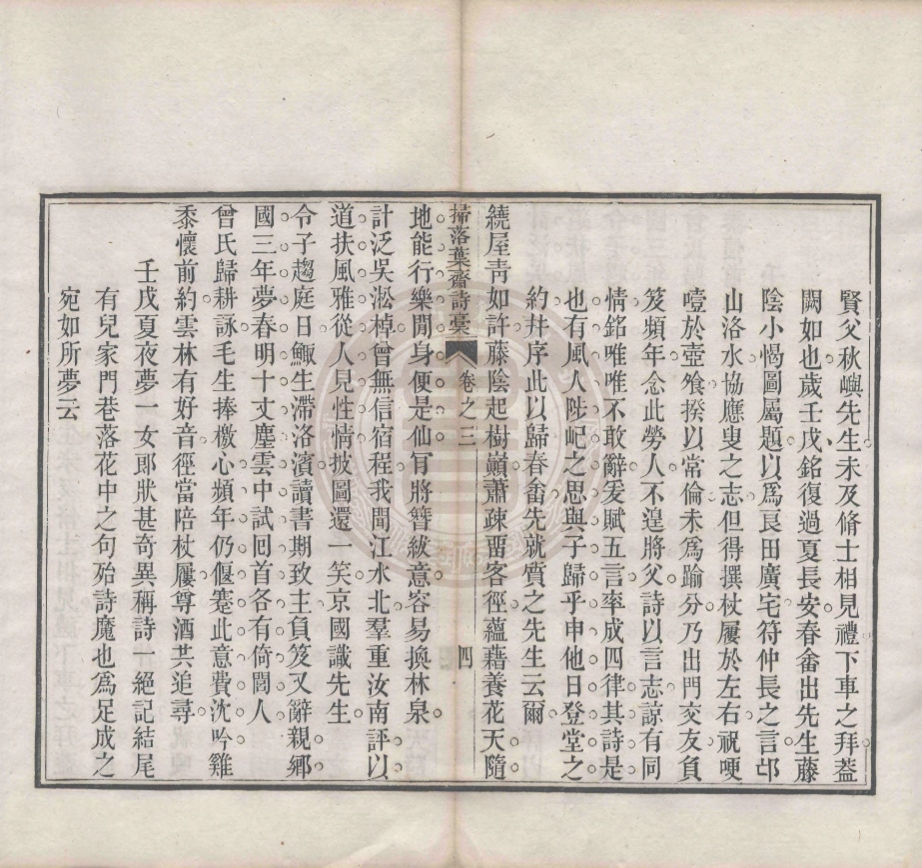 賢父秋嶼先生未及脩士相見禮下車之拜葢
闕如也歲壬戊銘復過夏長安春畬出先生藤
陰小憩圖屬題以爲良田廣宅符仲長之言邙
山洛水協應叟之志但得撰杖屨於左右祝哽
噎於壺飱揆以常倫未爲踰分乃出門交友負
笈頻年念此勞人不遑將父詩以言志諒有同
情銘唯唯不敢辭爰賦五言率成四律其詩是
也有風人陟屺之思與子歸乎申他日登堂之
約幷序此以歸春畬先就質之先生云爾
繞屋靑如許藤陰起樹巓蕭疎畱客徑蘊藉養花天隨
掃落葉齋詩稾 卷之三 四
地能行樂閒身便是仙肎將簪紱意容易換林泉
計泛吳淞棹曾無信宿程我聞江水北羣重汝南評以
道扶風雅從人見性情披圖還一笑京國識先生
令子趨庭日鯫生滯洛濱讀書期致主負笈又辭親鄉
國三年夢春明十丈塵雲中試囘首各有倚閭人
曾氏歸耕詠毛生捧檄心頻年仍偃蹇此意費沈吟雞
黍懷前約雲林有好音徑當陪杖屨尊酒共追尋
壬戊夏夜夢一女郞狀甚奇異稱詩一絕記結尾
有兒家門巷落花中之句殆詩魔也爲足成之
宛如所夢云